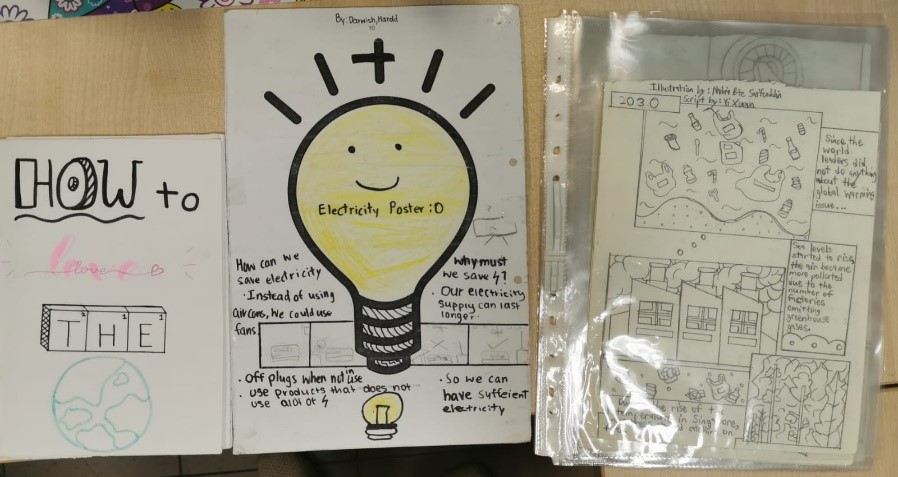 HOW to
love
THE
By: Darwish, Harold
Electricity Poster :D
How can we
save electricity
• Instead of using
aircons, We could use
fans
• Off plugs when not in use
• use products that does not
use alot of
Why must
we save ?
• Our electricity
supply can last
longer.
• So we can
have suffcient
electricity
Illustration by:
Script by: Yi Xuan
2030
Since the
world
leaders did
not do anything
about the
global warming
issue...
Sea levels
started to rise,
the air became
more polluted
due to the
number of
factories
emitting
greenhouse
gases.
rise of
in Singapore,
on